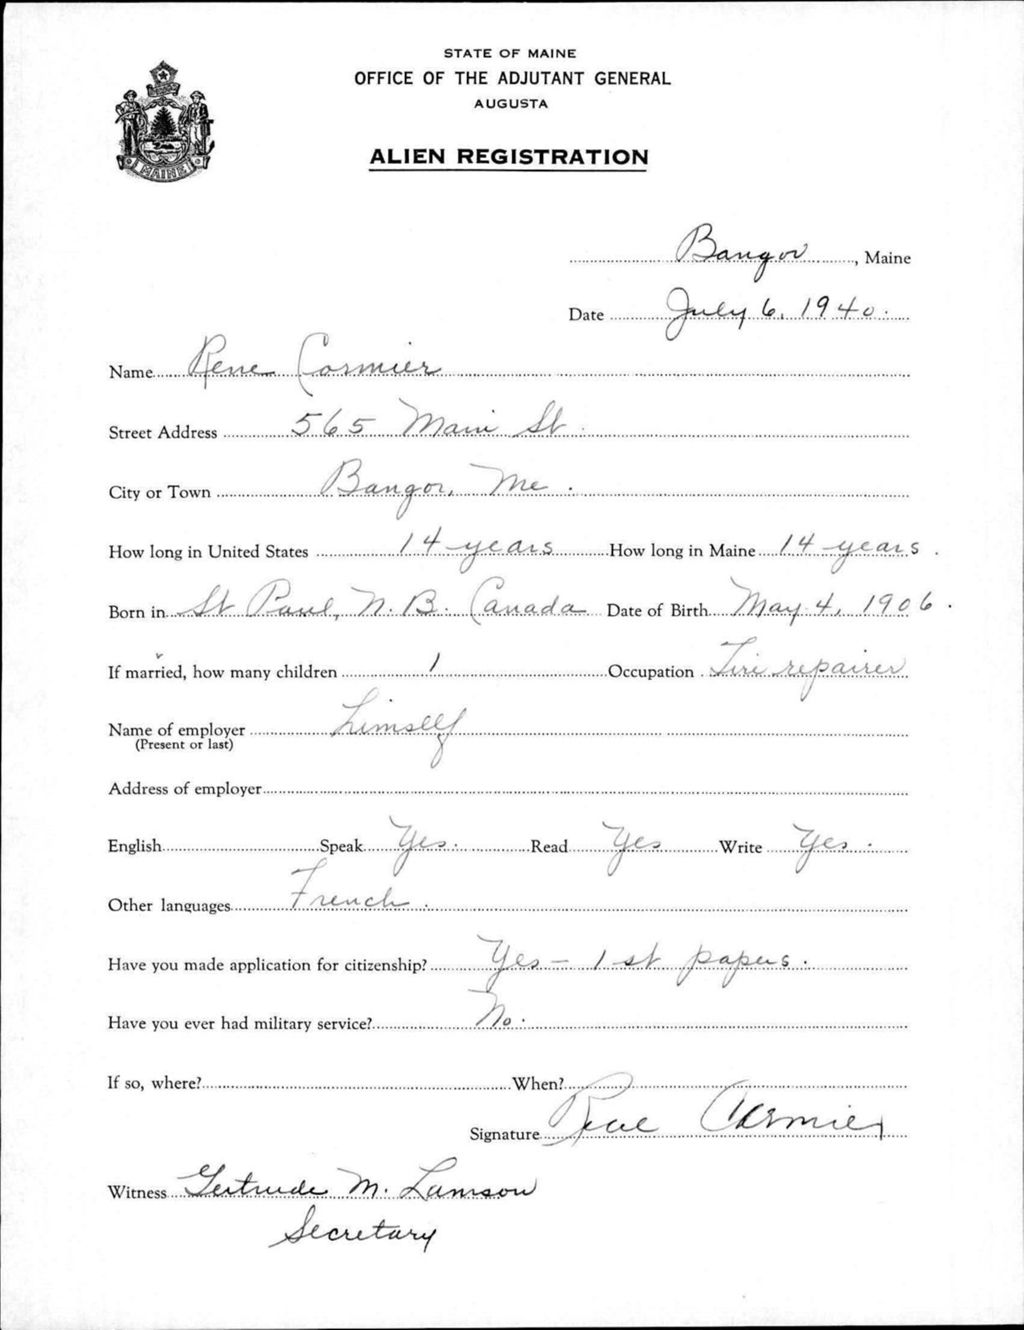 STATE OF MAINE
OFFICE OF THE ADJUTANT GENERAL
AUGUSTA
ALIEN REGISTRATION
MAINE
Bangor, Maine
Date July 6, 1940.
Name Rene Cormier
Street Address 565 Main St.
City or Town Bangor, Me.
How long in United States 14 years How long in Maine 14 years.
Born in St Paul, N.B. Canada Date of Birth May 4, 1906.
If married, how many children 1 Occupation Tire repairer
Name of employer himself
(Present or last)
Address of employer
English Speak Yes. Read Yes Write Yes.
Other languages French.
Have you made application for citizenship? Yes – 1st papers.
Have you ever had military service? No.
If so, where? When?
Signature Rene Cormier
Witness Gertrude M. Lamson
Secretary